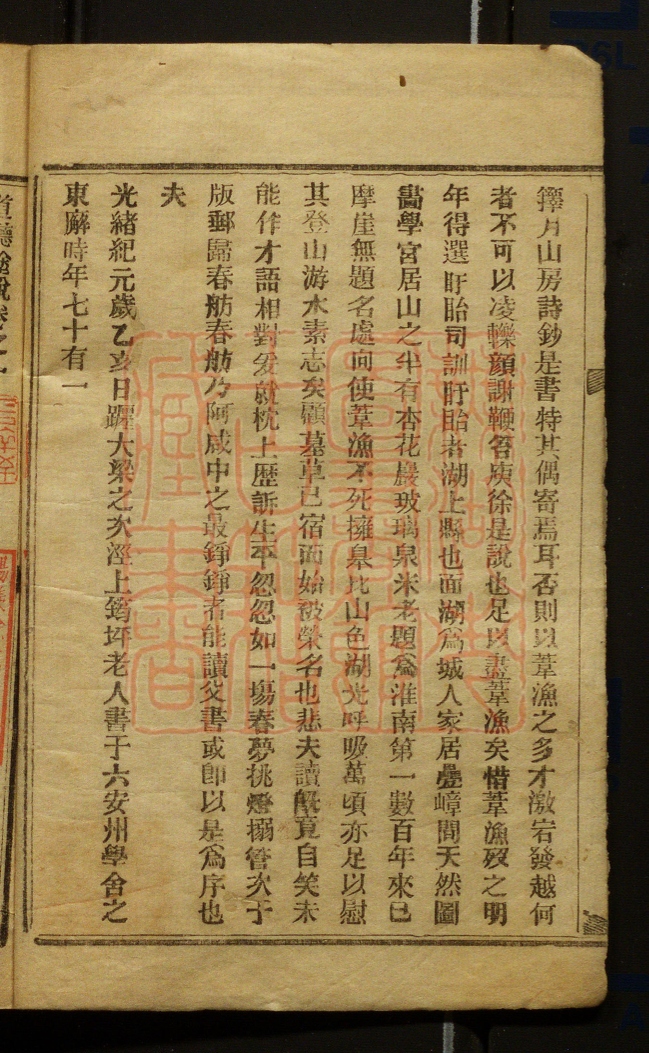 擇月山房詩鈔是書特其偶寄焉耳否則以葦漁之多才激宕發越何
者不可以凌轢顏謝鞭笞庾徐是說也足以盡葦漁矣惜葦漁歿之明
年得選盱眙司訓盱眙者湖上縣也面湖爲城人家居疊嶂間天然圖
畵學宮居山之半有杏花巖玻璃泉米老題爲淮南第一數百年來已
摩崖無題名處向使葦漁不死擁臯比山色湖光呼吸萬頃亦足以慰
其登山游水素志矣顧墓草已宿而始被榮名也悲夫讀旣竟自笑未
能作才語相對爰就枕上歷訴生平忽忽如一塲春夢挑燈搦管次于
版郵歸春舫春舫乃阿咸中之最錚錚者能讀父書或卽以是爲序也
夫
光緒紀元歲乙亥日躔大梁之次涇上筠坪老人書于六安州學舍之
東廨時年七十有一